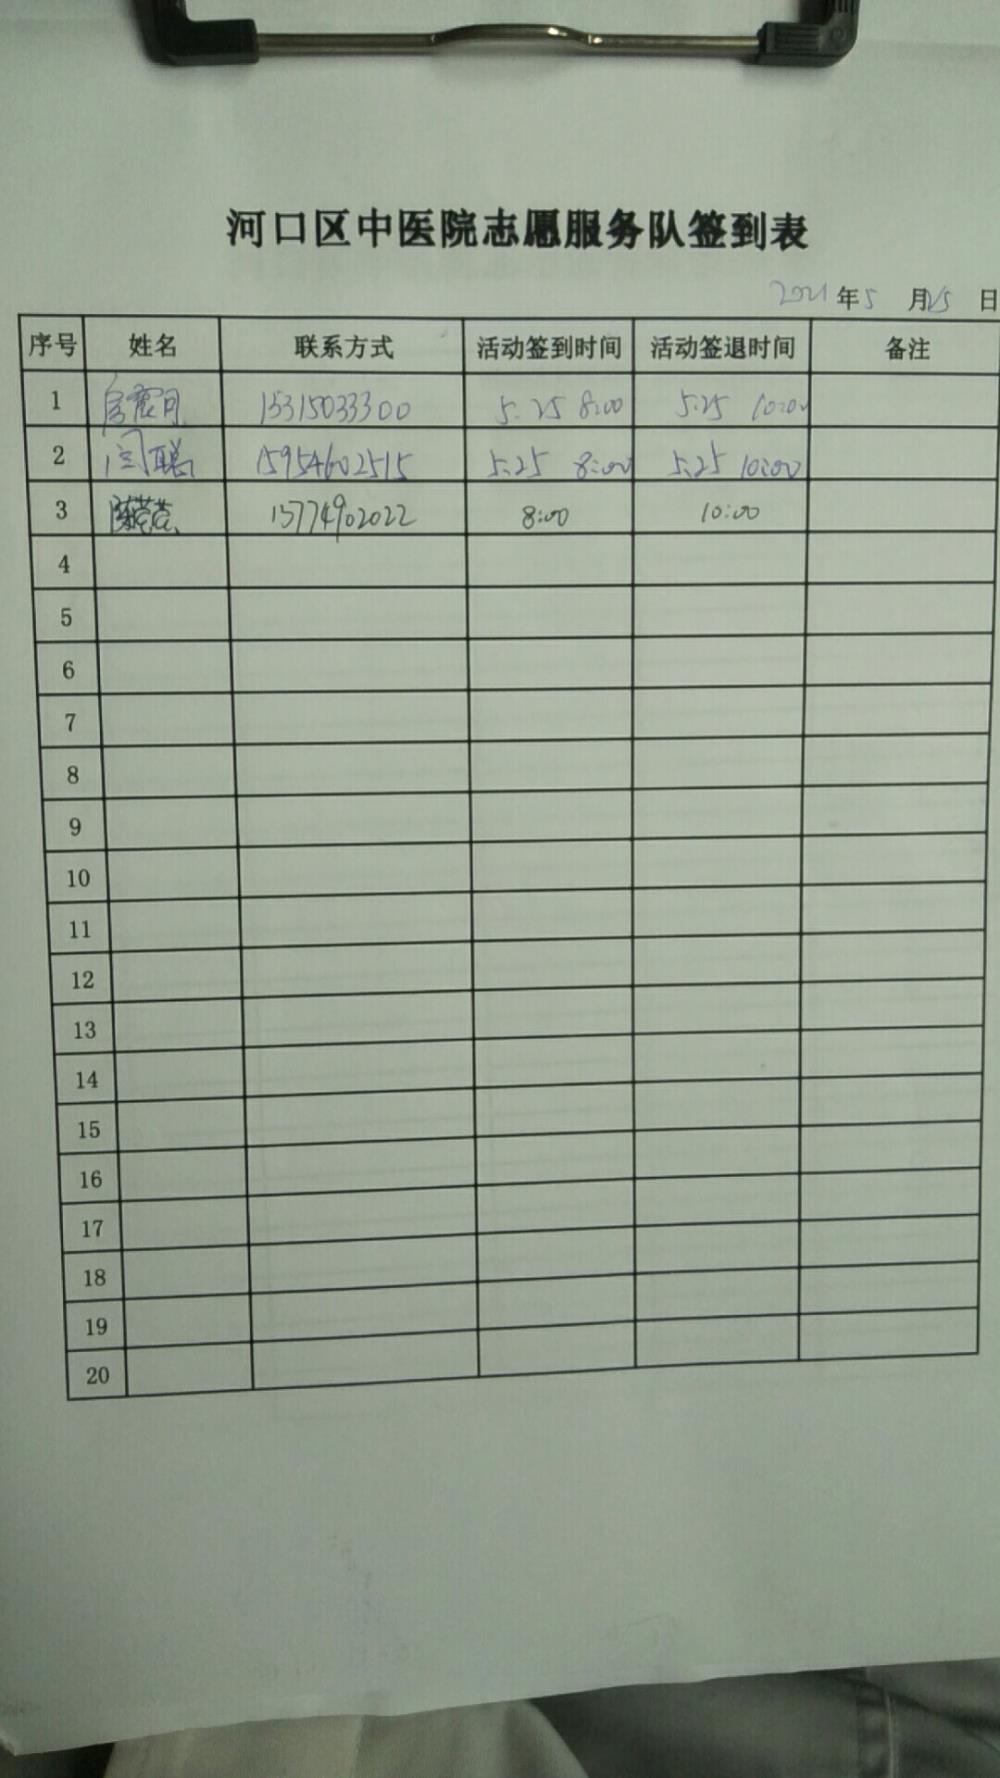 河口区中医院志愿服务队签到表
2021 年 5 月 25 日
序号 姓名 联系方式 活动签到时间 活动签退时间 备注
1 15315033300 5.25 8:00 5.25 10:00
2 闫聪 15954602515 5.25 8:00 5.25 10:00
3 15774902022 8:00 10:00
4
5
6
7
8
9
10
11
12
13
14
15
16
17
18
19
20